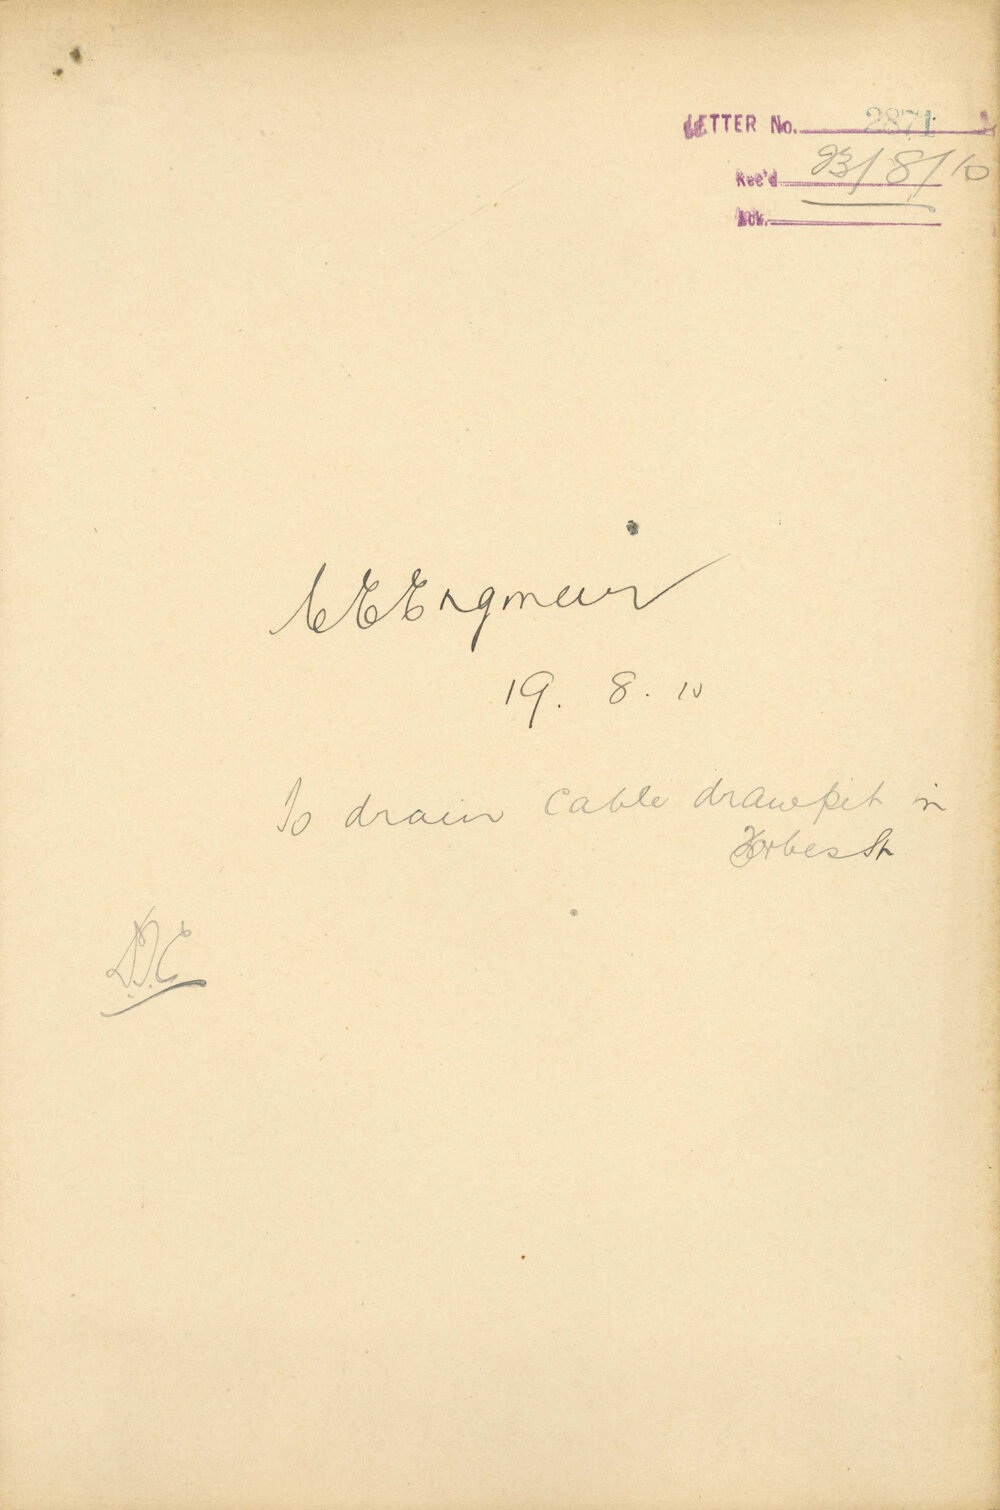 LETTER No. 2871
Rec'd 23/8/10
Ack.
C E Engineer
19. 8. 10
To drain cable drawpit in
Forbes St
D.T.C